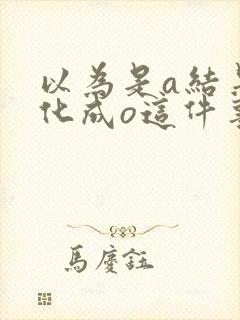 以為是a結
化成o這件
馬慶鈺